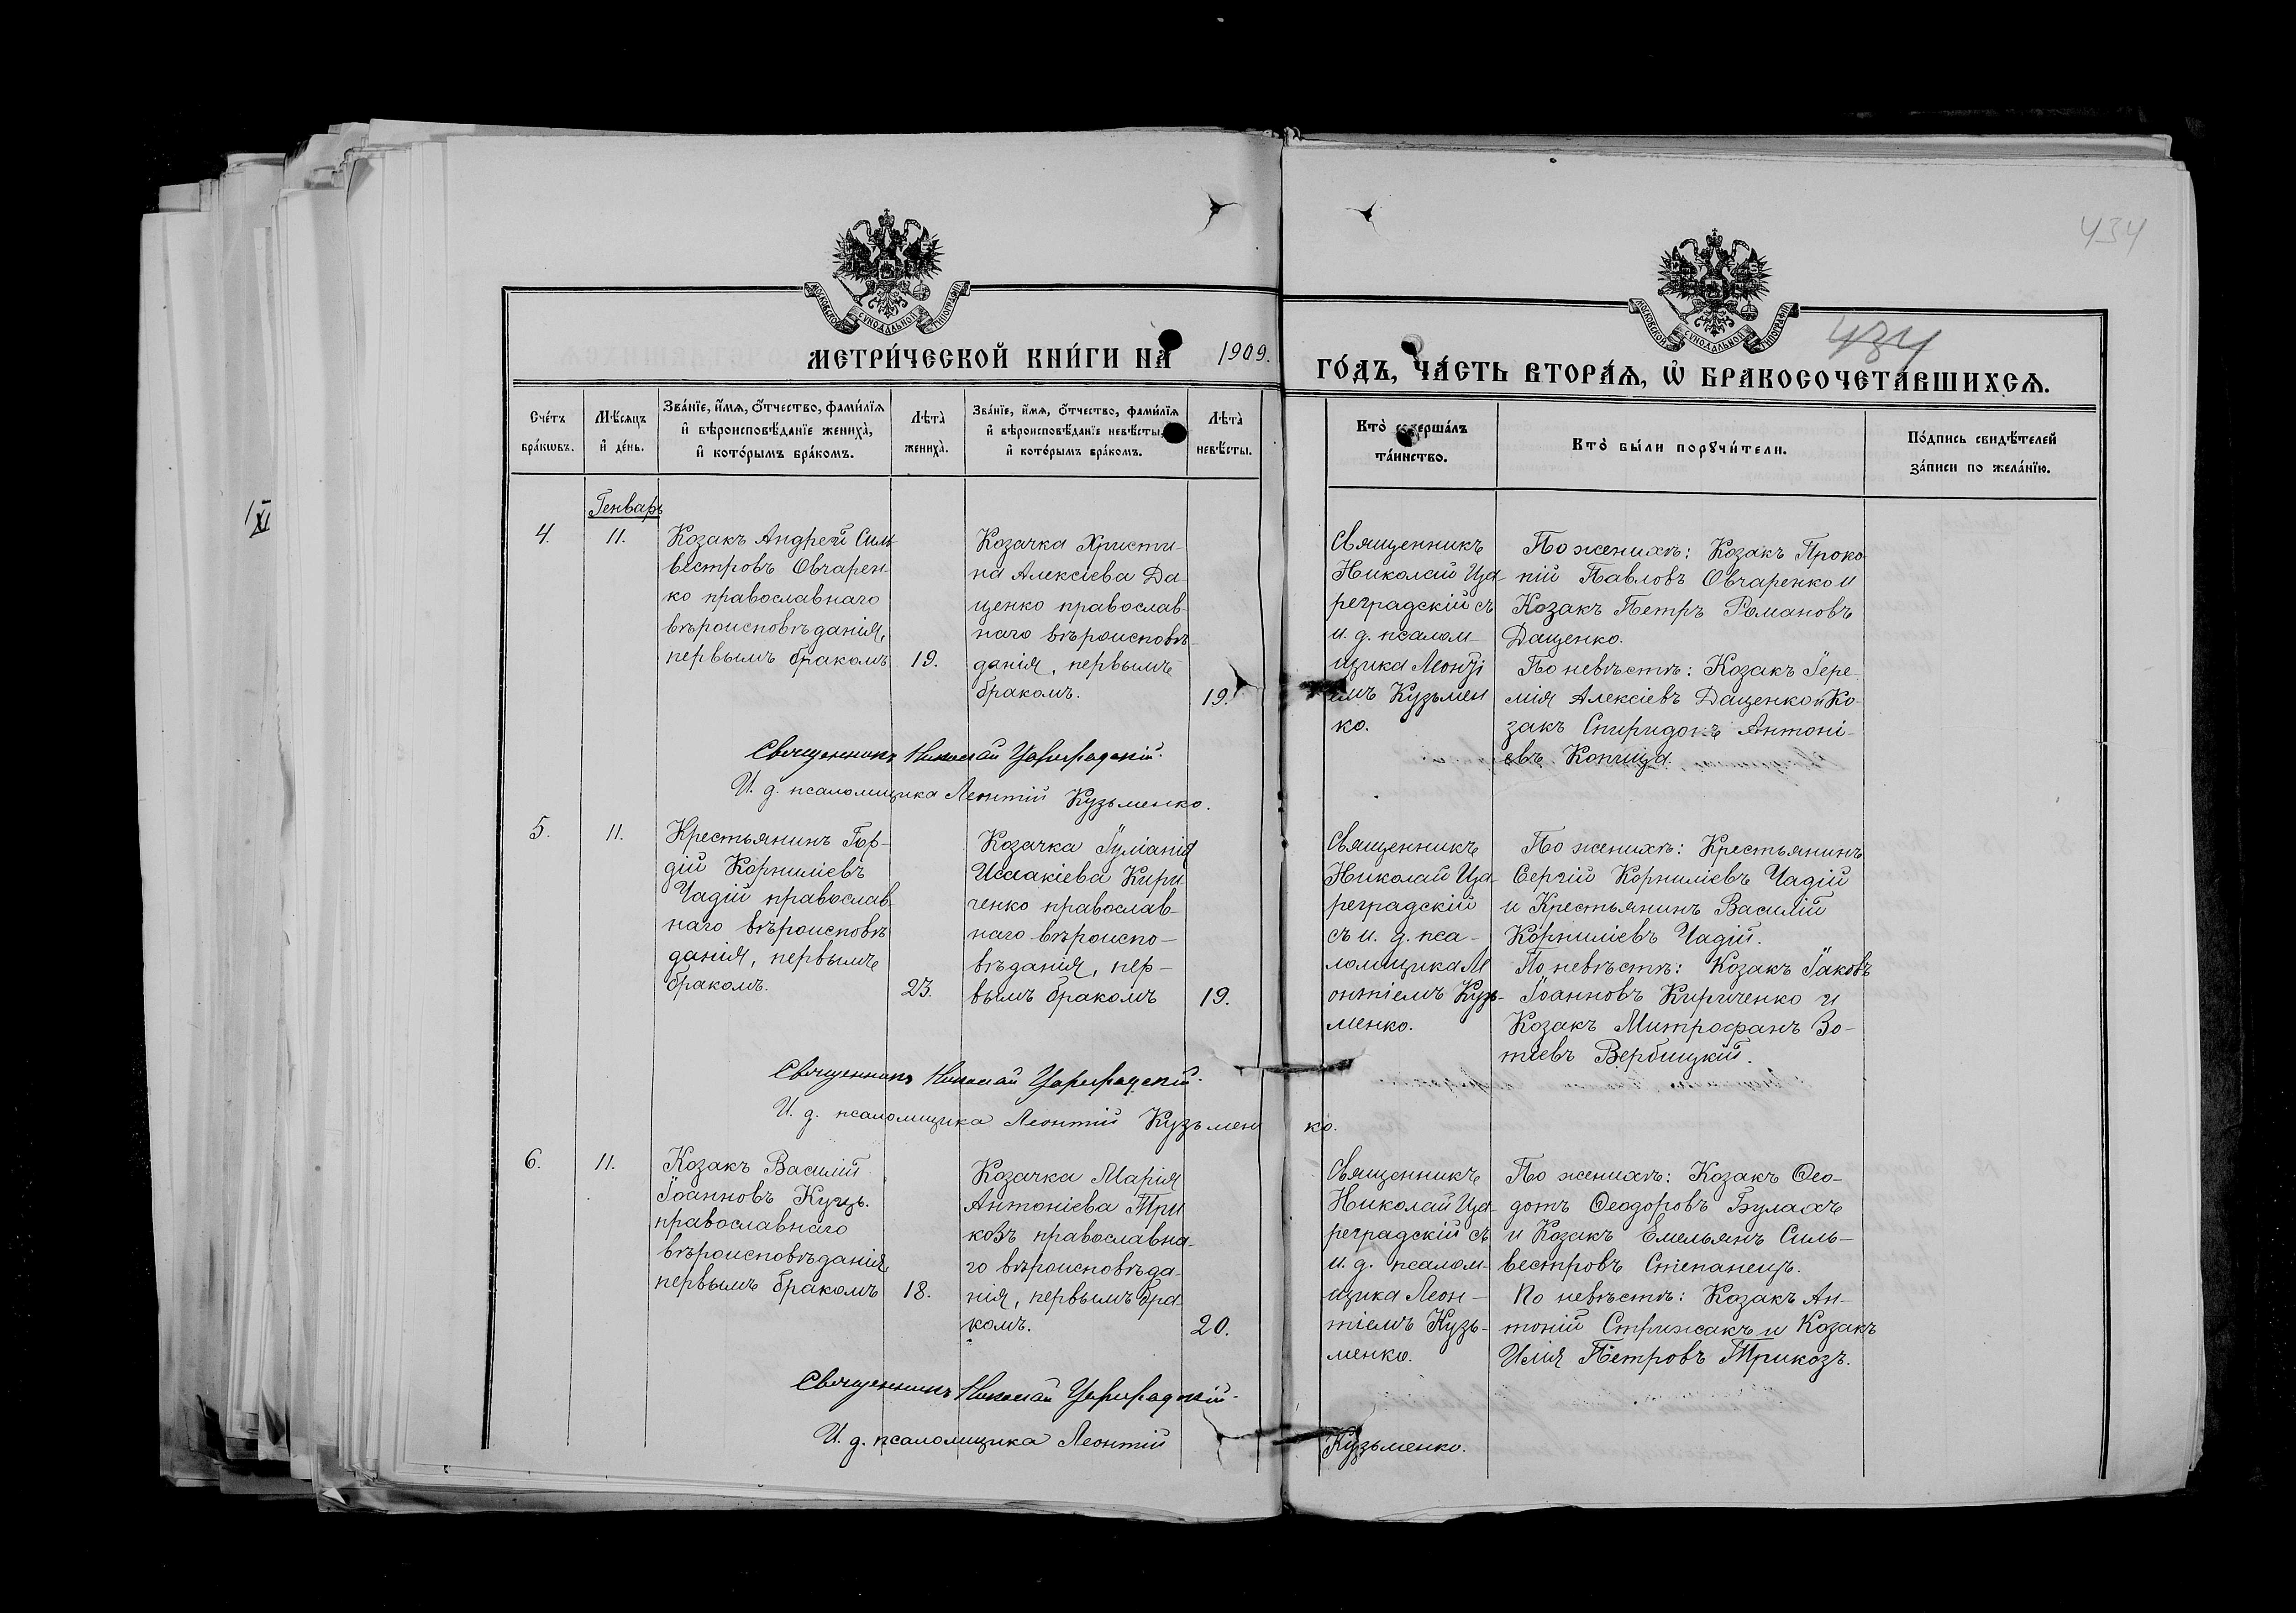 434
МОСКОВСКОЙ СѴНОДАЛЬНОЙ ТИПОГРАФІИ
МОСКОВСКОЙ СѴНОДАЛЬНОЙ ТИПОГРАФІИ
434
МЕТРИ́ЧЕСКОЙ КНИ́ГИ НА 1909.
ГО́ДЪ, ЧА́СТЬ ВТОРА́Ѧ, Ѡ БРАКОСОЧЕТА́ВШИХСѦ.
Сче́тъ
бра́кѡвъ.
Мѣ́сѧцъ
и҆ де́нь.
Зва́нїе, и҆́мѧ, ѻ҆́тчество, фами́лїѧ
и҆ вѣроисповѣ́данїе жениха̀,
и҆ кото́рымъ бра́комъ.
Лѣта̀
жениха̀.
Зва́нїе, и҆́мѧ, ѻ҆́тчество, фами́лїѧ
и҆ вѣроисповѣ́данїе невѣ́сты,
и҆ кото́рымъ бра́комъ.
Лѣта̀
невѣ́сты.
Кто̀ соверша́лъ
та́инство.
Кто̀ бы́ли порꙋчи́тели.
По́дпись свидѣ́телей
за́писи по жела́нїю.
Генварь
4.
11.
Козакъ Андрей Силь-
вестровъ Овчарен-
ко православнаго
вѣроисповѣданія,
первымъ бракомъ
19.
Козачка Христи-
на Алексіева Да-
щенко православ-
наго вѣроисповѣ-
данія, первымъ
бракомъ.
19.
Священникъ
Николай Ца-
реградскій съ
и. д. псалом-
щика Леонті
емъ Кузьмен
ко.
По женихѣ: Козакъ Проко
пій Павловъ Овчаренко и
Козакъ Петръ Романовъ
Дащенко.
По невѣстѣ: Козакъ Іере-
мія Алексіевъ Дащенко и Ко-
закъ Спиридонъ Антоні-
евъ Копища.
Священникъ Николай Цареградскій.
И. д. псаломщика Леонтій Кузьменко.
5.
11.
Крестьянинъ Гор-
дій Корниліевъ
Чадій православ-
наго вѣроисповѣ
данія, первымъ
бракомъ.
23.
Козачка Іуліанія
Исаакіева Кири
ченко православ-
наго вѣроиспо-
вѣданія, пер-
вымъ бракомъ
19.
Священникъ
Николай Ца-
реградскій
съ и. д. пса-
ломщика Л
онтіемъ Кузь-
менко.
По женихѣ: Крестьянинъ
Сергій Корниліевъ Чадій
и Крестьянинъ Василій
Корниліевъ Чадій.
По невѣстѣ: Козакъ Іаковъ
Іоанновъ Кириченко и
Козакъ Митрофанъ Зо-
тіевъ Вербицкій.
Священникъ Николай Цареградскій.
И. д. псаломщика Леонтій Кузьменко.
6.
11.
Козакъ Василій
Іоанновъ Куць.
православнаго
вѣроисповѣданія,
первымъ бракомъ
18.
Козачка Марія
Антоніева Три
козъ православна-
го вѣроисповѣда-
нія, первымъ бра-
комъ.
20.
Священникъ
Николай Ца-
реградскій съ
и. д. псалом-
щика Леон-
тіемъ Кузь-
менко.
По женихѣ: Козакъ Ѳео-
дотъ Ѳеодоровъ Булахъ
и Козакъ Емельянъ Силь-
вестровъ Степанецъ.
По невѣстѣ: Козакъ Ан-
тоній Стрижакъ и Козакъ
Илія Петровъ Трикозъ.
Священникъ Николай Цареградскій.
И. д. псаломщика Леонтій Кузьменко.